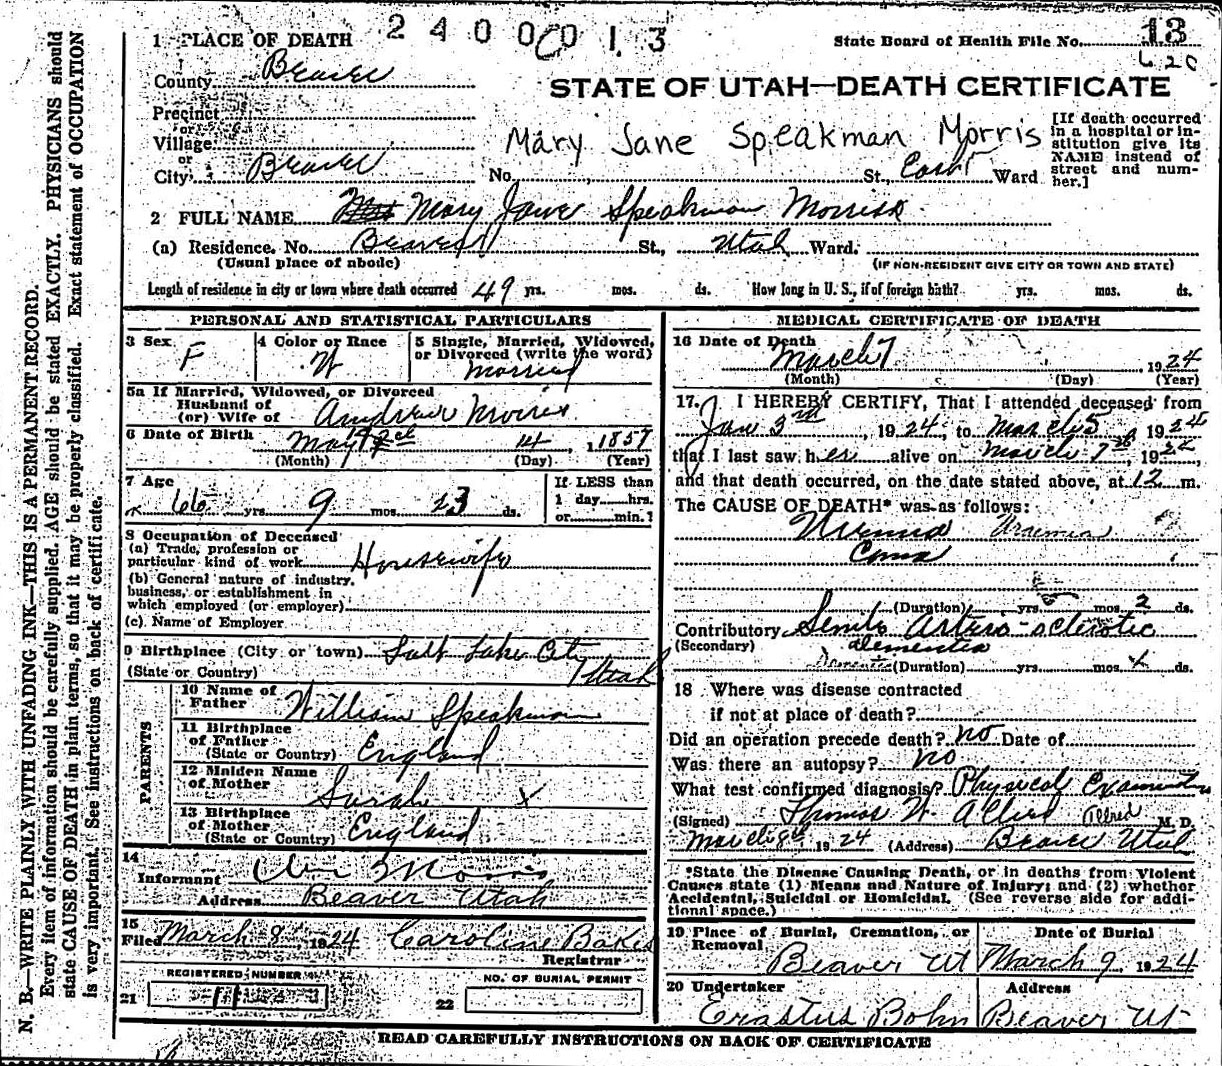 2400013
1 PLACE OF DEATH
State Board of Health File No. 13
620
County Beaver
STATE OF UTAH—DEATH CERTIFICATE
Precinct
or
Village
or
City Beaver
Mary Jane Speakman Morris
No. St., East Ward
[If death occurred
in a hospital or in-
stitution give its
NAME instead of
street and num-
ber.]
2 FULL NAME Mary Jane Speakman Morris
(a) Residence. No. Beaver St., Utah Ward.
(Usual place of abode)
(IF NON-RESIDENT GIVE CITY OR TOWN AND STATE)
Length of residence in city or town where death occurred 49 yrs. mos. ds. How long in U. S., if of foreign birth? yrs. mos. ds.
PERSONAL AND STATISTICAL PARTICULARS
3 Sex F
4 Color or Race W
5 Single, Married, Widowed,
or Divorced (write the word)
Married
5a If Married, Widowed, or Divorced
Husband of
(or) Wife of Andrew Morris
6 Date of Birth May 14 1857
(Month) (Day) (Year)
7 Age 66 yrs. 9 mos. 23 ds.
If LESS than
1 day hrs.
or min.?
8 Occupation of Deceased
(a) Trade, profession or
particular kind of work Housewife
(b) General nature of industry,
business, or establishment in
which employed (or employer)
(c) Name of Employer
9 Birthplace (City or town) Salt Lake City
(State or Country) Utah
PARENTS
10 Name of
Father William Speakman
11 Birthplace
of Father
(State or Country) England
12 Maiden Name
of Mother Sarah X
13 Birthplace
of Mother
(State or Country) England
14
Informant Morris
Address Beaver Utah
15
Filed March 8 1924 Caroline Bakes
Registrar
REGISTERED NUMBER
21 11
NO. OF BURIAL PERMIT
22
MEDICAL CERTIFICATE OF DEATH
16 Date of Death
March 7 1924
(Month) (Day) (Year)
17. I HEREBY CERTIFY, That I attended deceased from
Jan 3rd, 1924, to March 5 1924
that I last saw her alive on March 7th, 1924,
and that death occurred, on the date stated above, at 12 m.
The CAUSE OF DEATH* was as follows:
Uremia Uraemia
Coma
(Duration) yrs. mos. 2 ds.
Contributory Senile Arterio-sclerotic
(Secondary) Dementia
Dementia (Duration) yrs. mos. ds.
18 Where was disease contracted
if not at place of death?
Did an operation precede death? no Date of
Was there an autopsy? no
What test confirmed diagnosis? Physical
(Signed) Thomas W. Allred Allred M. D.
March 8th, 1924 (Address) Beaver Utah
*State the Disease Causing Death, or in deaths from Violent
Causes state (1) Means and Nature of Injury; and (2) whether
Accidental, Suicidal or Homicidal. (See reverse side for addi-
tional space.)
19 Place of Burial, Cremation, or
Removal
Beaver Ut
Date of Burial
March 9 1924
20 Undertaker
Erastus Bohn
Address
Beaver Ut
READ CAREFULLY INSTRUCTIONS ON BACK OF CERTIFICATE
N. B.—WRITE PLAINLY WITH UNFADING INK—THIS IS A PERMANENT RECORD.
Every item of information should be carefully supplied. AGE should be stated EXACTLY. PHYSICIANS should
state CAUSE OF DEATH in plain terms, so that it may be properly classified. Exact statement of OCCUPATION
is very important. See instructions on back of certificate.